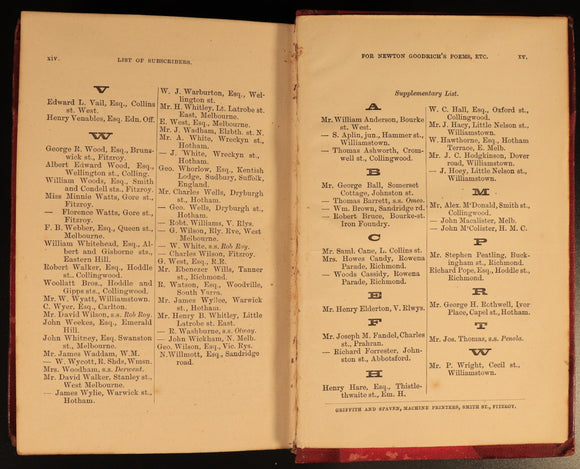 xiv. LIST OF SUBSCRIBERS.
V
Edward L. Vail, Esq., Collins
st. West.
Henry Venables, Esq. Edn. Off.
W
George R. Wood, Esq., Bruns-
wick st., Fitzroy.
Albert Edward Wood, Esq.,
Wellington st., Colling.
William Woods, Esq., Smith
and Condell sts., Fitzroy.
Miss Minnie Watts, Gore st.,
Fitzroy.
— Florence Watts, Gore st.,
Fitzroy.
F. B. Webber, Esq., Queen st.,
Melbourne.
William Whitehead, Esq., Al-
bert and Gisborne sts.,
Eastern Hill.
Robert Walker, Esq., Hoddle
st., Collingwood.
Woollatt Bros., Hoddle and
Gipps sts., Collingwood.
Mr. W. Wyatt, Williamstown.
C. Wyer, Esq., Carlton.
Mr. David Wilson, s.s. Rob Roy.
John Weekes, Esq., Emerald
Hill.
John Whitney, Esq. Swanston
st., Melbourne.
Mr. James Waddam, W.M.
— W. Wycott, R. Shds, Wmsn.
Mrs. Woodham, s.s. Derwent.
Mr. David Walker, Stanley st.,
West Melbourne.
— James Wylie, Warwick st.,
Hotham.
W. J. Warburton, Esq., Wel-
lington st.
Mr. H. Whitley, Lt. Latrobe st.
East, Melbourne.
E. West, Esq., Melbourne.
Mr. J. Wadham, Elzbth. st. N.
Mr. A. White, Wreckyn st.,
Hotham.
— J. White, Wreckyn st.,
Hotham.
Geo. Whorlow, Esq., Kentish
Lodge, Sudbury, Suffolk,
England.
Mr. Charles Wells, Dryburgh
st., Hotham.
— Geo. Wells, Dryburgh st.,
Hotham.
— Robt. Williams, V. Rlys.
— G. Wilson, Rly. Rve, West
Melbourne.
— W. White, s.s. Rob Roy.
— Charles Wilson, Fitzroy.
G. West, Esq., R.R.
Mr. Ebenezer Wills, Tanner
st., Richmond.
R. Watson, Esq., Woodville,
South Yarra.
Mr. James Wylloe, Warwick
st., Hotham.
Mr. Henry B. Whitley, Little
Latrobe st. East.
— R. Washburne, s.s. Obouy.
— John Wickham, N. Melb.
Geo. Wilson, Esq., Vic. Rys.
N. Willmott, Esq., Sandridge
road.
FOR NEWTON GOODRICH'S POEMS, ETC. XV.
Supplementary List.
A
Mr. William Anderson, Bourke
st. West.
— S. Aplin, jun., Hammer st.,
Williamstown.
— Thomas Ashworth, Crom-
well st., Collingwood.
B
Mr. George Ball, Somerset
Cottage, Johnston st.
Thomas Barrett, s.s. Omeo.
— Wm. Brown, Sandridge rd.
— Robert Bruce, Bourke-st.
Iron Foundry.
C
Mr. Saml. Cane, L. Collins st.
Mrs. Howes Candy, Rowena
Parade, Richmond.
— Woods Cassidy, Rowena
Parade, Richmond.
E
Mr. Henry Elderton, V. Rlwys.
F
Mr. Joseph M. Fandel, Charles
st., Prahran.
— Richard Forrester, John-
ston st., Abbotsford.
H
Henry Hare, Esq., Thistle-
thwaite st., Em. H.
W. C. Hall, Esq., Oxford st.,
Collingwood.
Mr. J. Hacy, Little Nelson st.,
Williamstown.
W. Hawthorne, Esq., Hotham
Terrace, E. Melb.
Mr. J. C. Hodgkinson, Dover
road, Williamstown.
— J. Hoey, Little Nelson st.,
Williamstown.
M
Mr. Alex. M'Donald, Smith st.,
Collingwood.
— John Macalister, Melb.
— John M'Colister, H. M. C.
P
Mr. Stephen Peatling, Buck-
ingham st., Richmond.
Richard Pope, Esq., Hoddle st.,
Richmond.
R
Mr. George H. Rothwell, Iver
Place, Capel st., Hotham.
T
Mr. Jos. Thomas, s.s. Penola.
W
Mr. P. Wright, Cecil st.,
Williamstown.
GRIFFITH AND SPAVEN, MACHINE PRINTERS, SMITH ST., FITZROY.